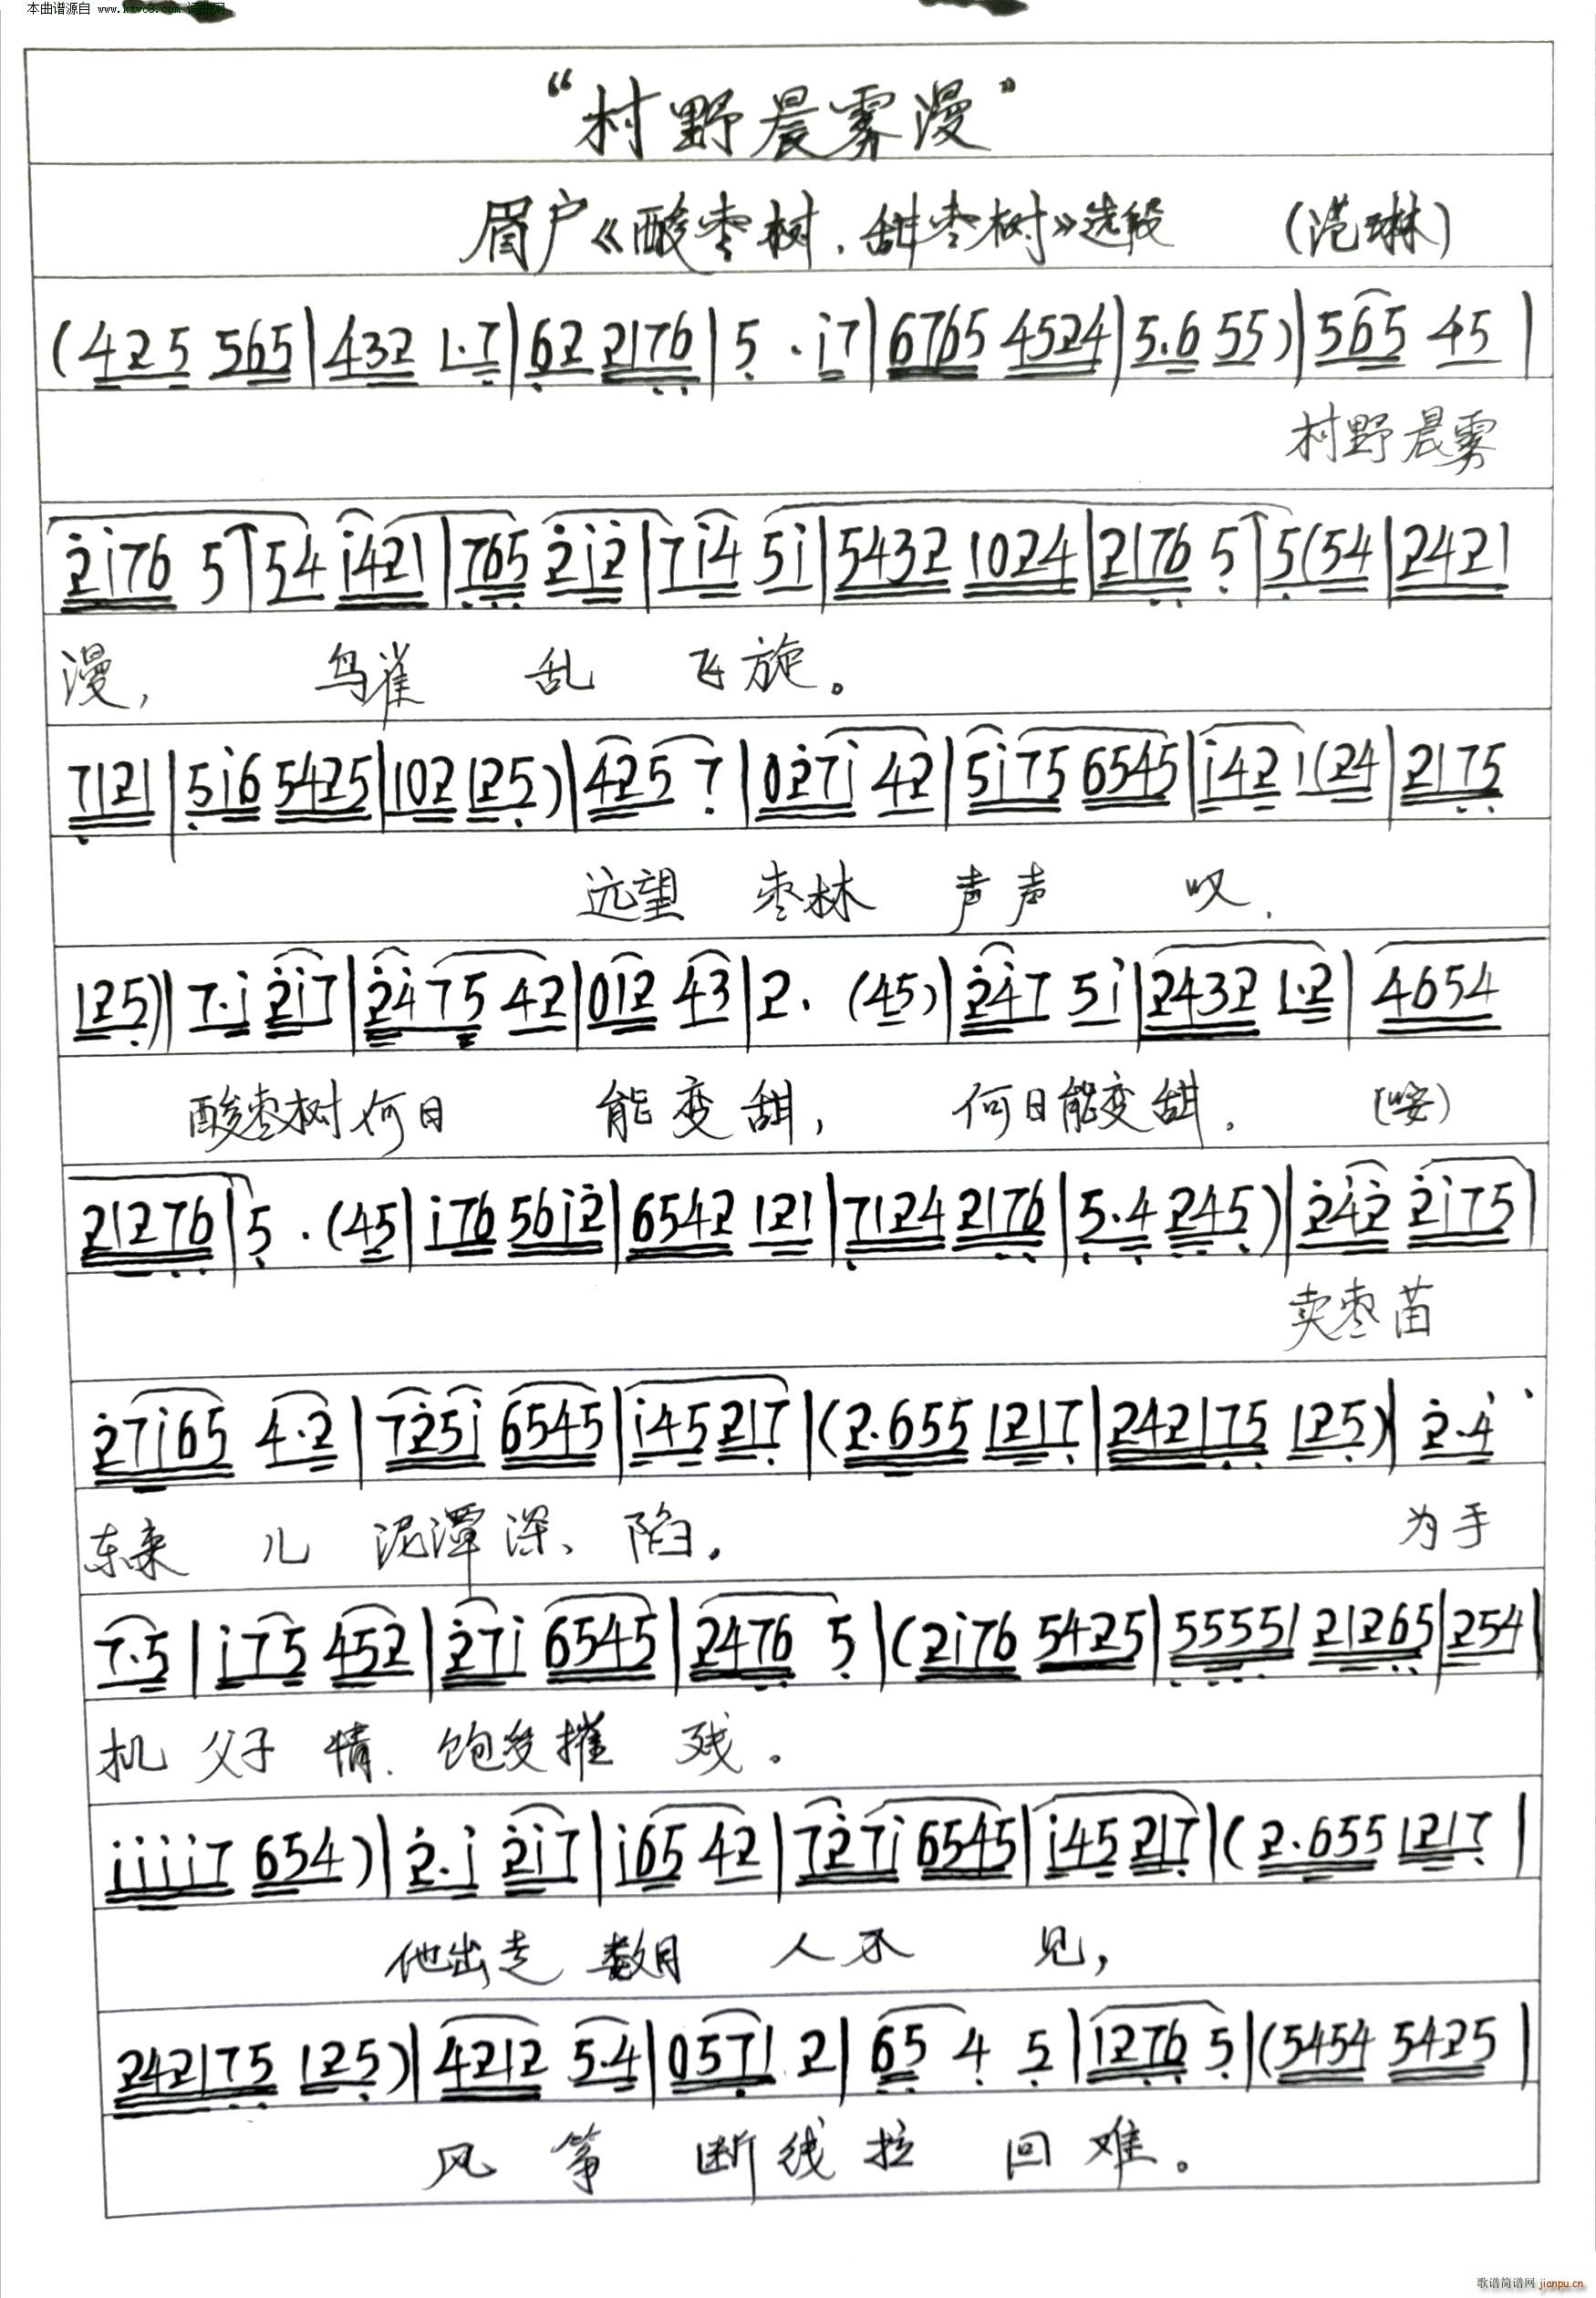 本曲谱源自 www.ktvc8.com 词曲网
“村野晨雾漫”
眉户《酸枣树、甜枣树》选段 (范琳)
(425 565|432 1·7|62 2176|5 · i7|6765 4524|5·6 55)|565 45|
村野晨雾
2i76 5|54 i421|765 2i2|7i4 5i|5432 1024|2176 5|5(54|2421
漫, 鸟雀 乱 飞旋。
7121|5i6 5425|102 125)|425 7|027i 42|5i75 6545|i42 1(24|2175
远望 枣林 声声 叹.
125)|7·i 2i7|24 75 42|012 43|2· (45)|247 5i|2432 1·2|4654
酸枣树何日 能变甜, 何日能变甜. (哎)
21276|5 · (45|i76 56i2|6542 121|7124 2176|5·4 245)|242 2i75|
卖枣苗
27i65 4·2|725i 6545|i45217|(2·655 1217|242175 125)|2·4
东来 儿 泥潭深、陷. 为手
7·5|i75 452|27i 6545|2476 5|(2i76 5425|55551 21265|254|
机 父子 情. 饱受摧 残。
iiii7 654)|2·i 2i7|i65 42|727i 6545|i45 217|(2·655 1217|
他出走 数月 人不 见,
242175 125)|4212 5·4|0571 2|65 4 5|1276 5|(5454 5425|
风 筝 断线拉 回 难。
歌谱简谱网 jianpu.cn